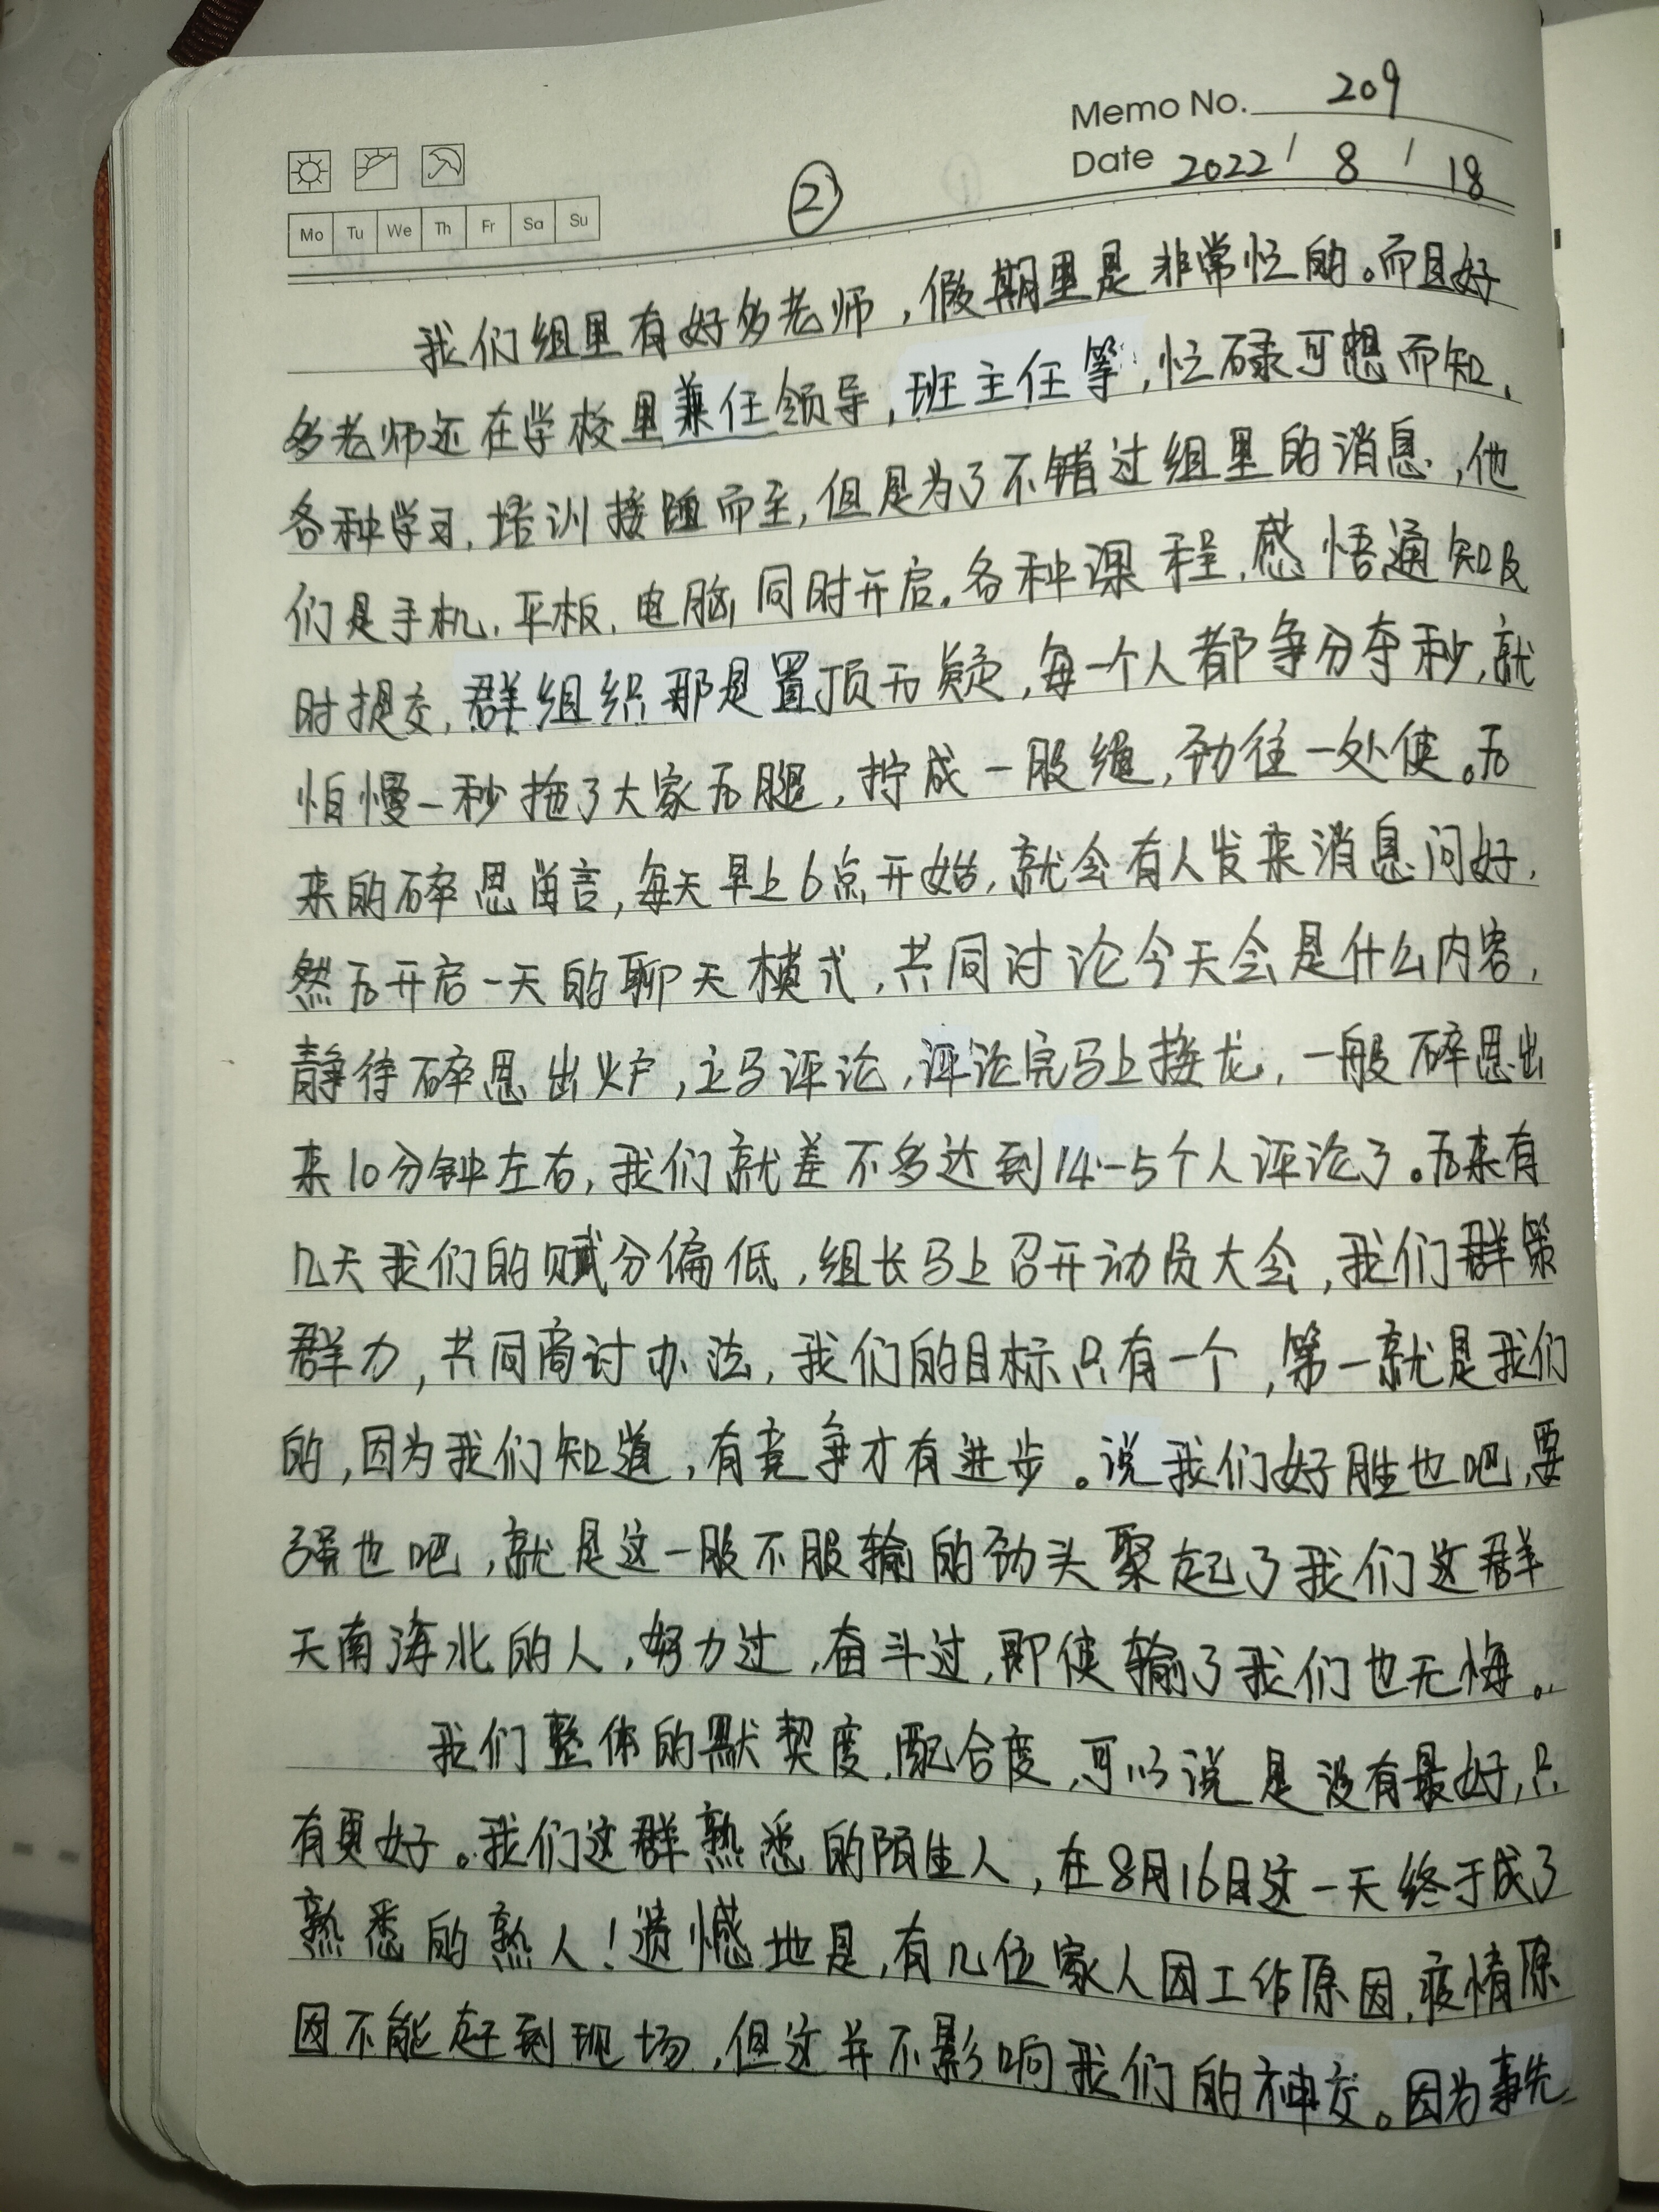 Memo No. 209
Date 2022 / 8 / 18
Mo Tu We Th Fr Sa Su
②
我们组里有好多老师,假期里是非常忙的。而且好
多老师还在学校里兼任领导,班主任等,忙碌可想而知,
各种学习,培训接踵而至,但是为了不错过组里的消息,他
们是手机,平板,电脑同时开启,各种课程,感悟通知及
时提交,群组织那是置顶无疑,每一个人都争分夺秒,就
怕慢一秒拖了大家后腿,拧成一股绳,劲往一处使。后
来的碎思留言,每天早上6点开始,就会有人发来消息问好,
然后开启一天的聊天模式,共同讨论今天会是什么内容,
静待碎思出炉,立马评论,评论完马上接龙,一般碎思出
来10分钟左右,我们就差不多达到14-5个人评论了。后来有
几天我们的赋分偏低,组长马上召开动员大会,我们群策
群力,共同商讨办法,我们的目标只有一个,第一就是我们
的,因为我们知道,有竞争才有进步。说我们好胜也吧,要
强也吧,就是这一股不服输的劲头聚起了我们这群
天南海北的人,努力过,奋斗过,即使输了我们也无悔。
我们整体的默契度,配合度,可以说是没有最好,只
有更好。我们这群熟悉的陌生人,在8月16日这一天终于成了
熟悉的熟人!遗憾地是,有几位家人因工作原因,疫情原
因不能赶到现场,但这并不影响我们的神交。因为事先